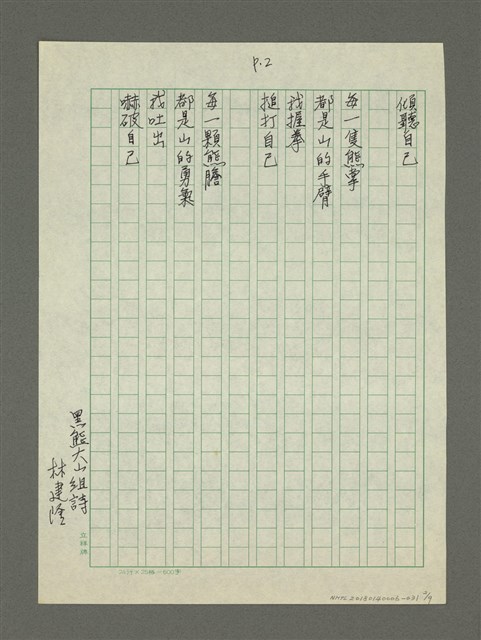 P.2
傾聽自己
每一隻熊掌
都是山的手臂
我握拳
搥打自己
每一顆熊膽
都是山的勇氣
我吐出
嚇破自己
黑熊大山組詩
林建隆
立祥牌
NMTL20180140006-031 2/9